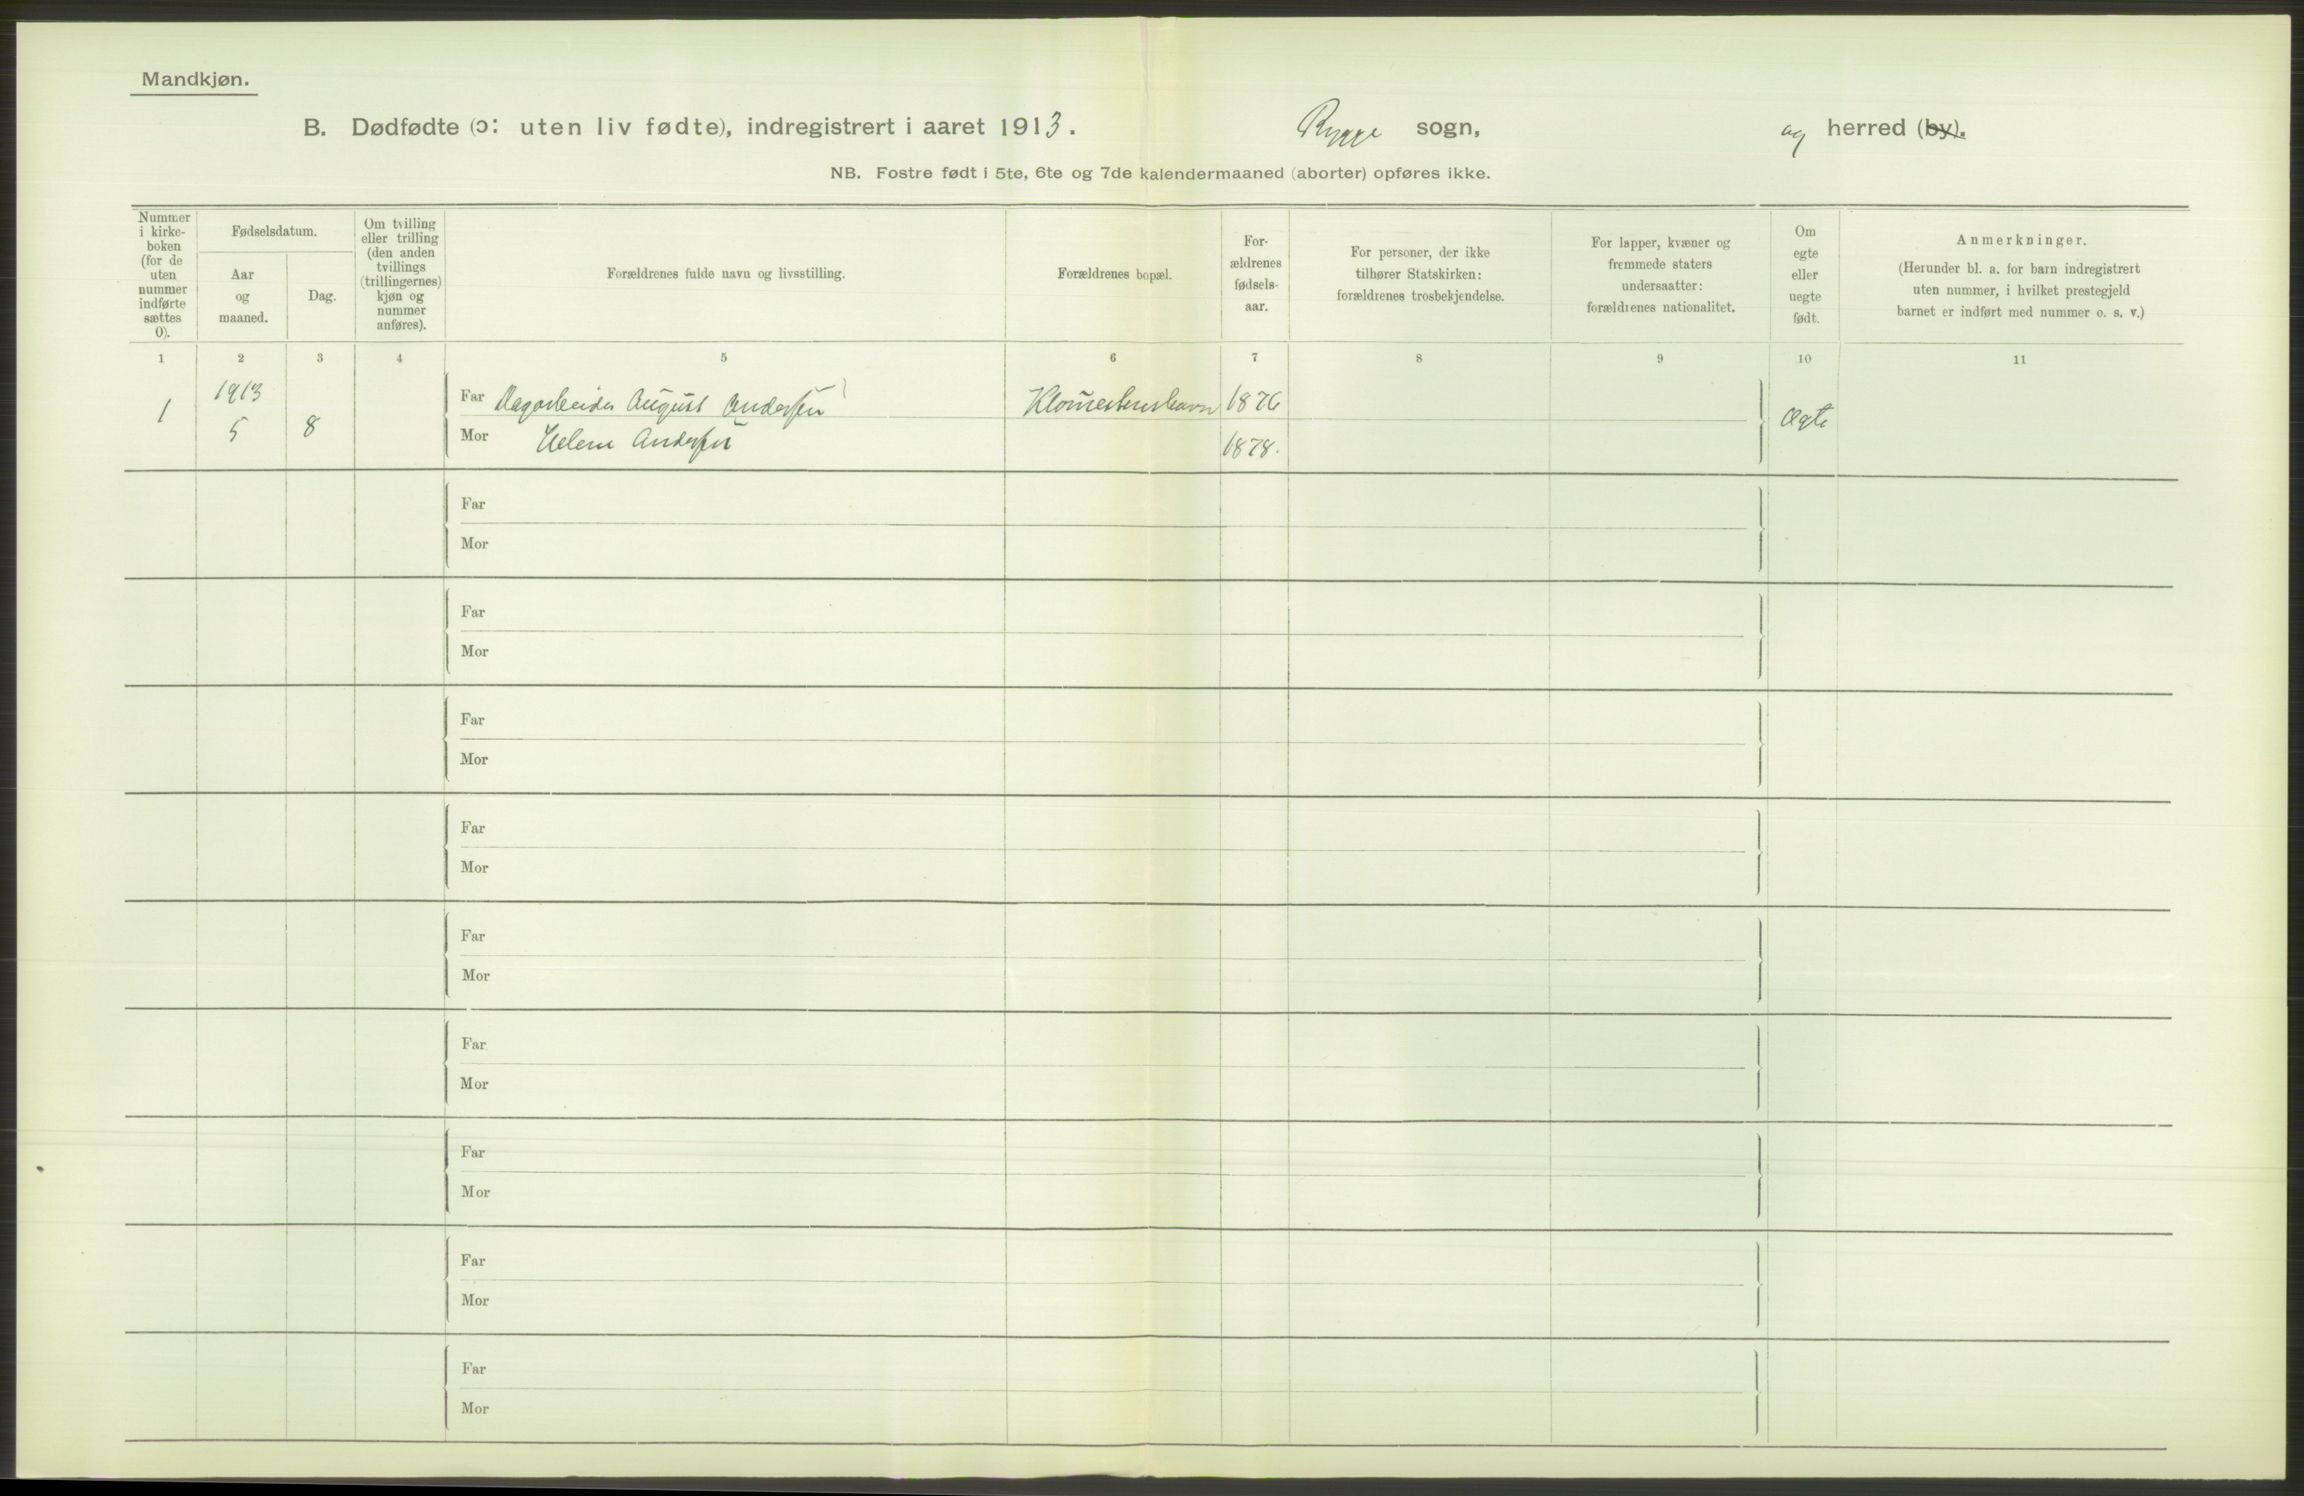 Mandkjøn.
B. Dødfødte (ɔ: uten liv fødte), indregistrert i aaret 1913. Rygge sogn, og herred (by).
NB. Fostre født i 5te, 6te og 7de kalendermaaned (aborter) opføres ikke.
Nummer
i kirke-
boken
(for de
uten
nummer
indførte
sættes
0).
Fødselsdatum.
Aar
og
maaned.
Dag.
Om tvilling
eller trilling
(den anden
tvillings
(trillingernes)
kjøn og
nummer
anføres).
Forældrenes fulde navn og livsstilling.
Forældrenes bopæl.
For-
ældrenes
fødsels-
aar.
For personer, der ikke
tilhører Statskirken:
forældrenes trosbekjendelse.
For lapper, kvæner og
fremmede staters
undersaatter:
forældrenes nationalitet.
Om
egte
eller
uegte
født.
Anmerkninger.
(Herunder bl. a. for barn indregistrert
uten nummer, i hvilket prestegjeld
barnet er indført med nummer o. s. v.)
1 2 3 4 5 6 7 8 9 10 11
1 1913 5 8
Far Dagarbeider August Andersen 1876
Mor Helene Andersen 1878.
Ægte
Far
Mor
Far
Mor
Far
Mor
Far
Mor
Far
Mor
Far
Mor
Far
Mor
Far
Mor
Far
Mor